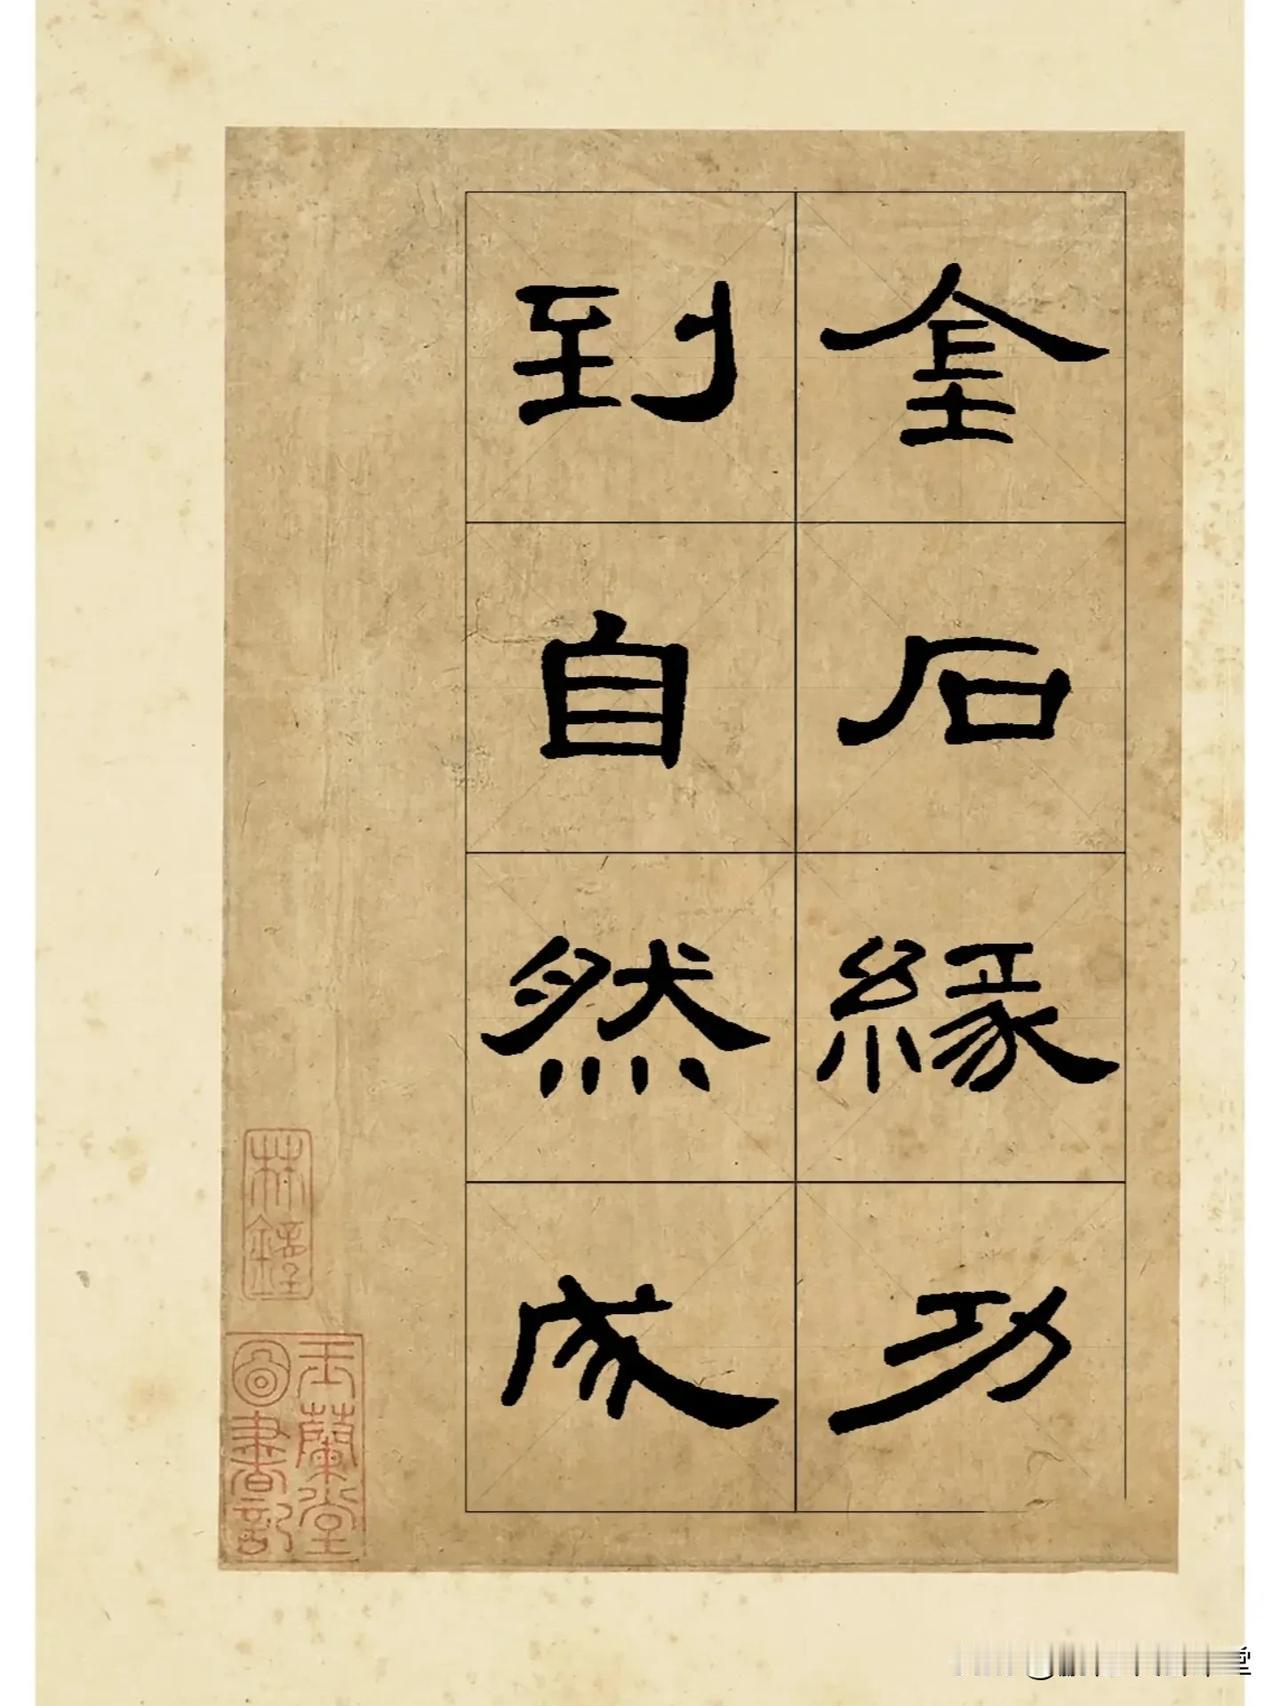 金石緣功
到自然成
玉蘭堂
圖書記